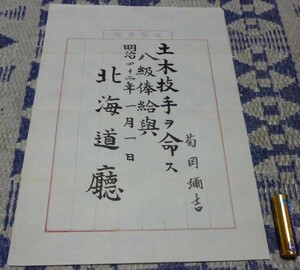 菊岡彌吉
土木技手ヲ命ス
八級俸給與
明治四十二年一月一日
北海道廳